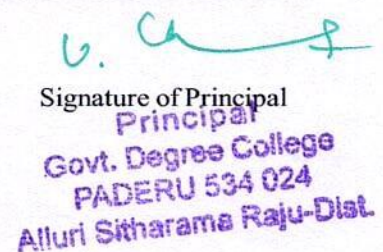 Signature of Principal
Principal
Govt. Degree College
PADERU 534 024
Alluri Sitharama Raju-Dist.